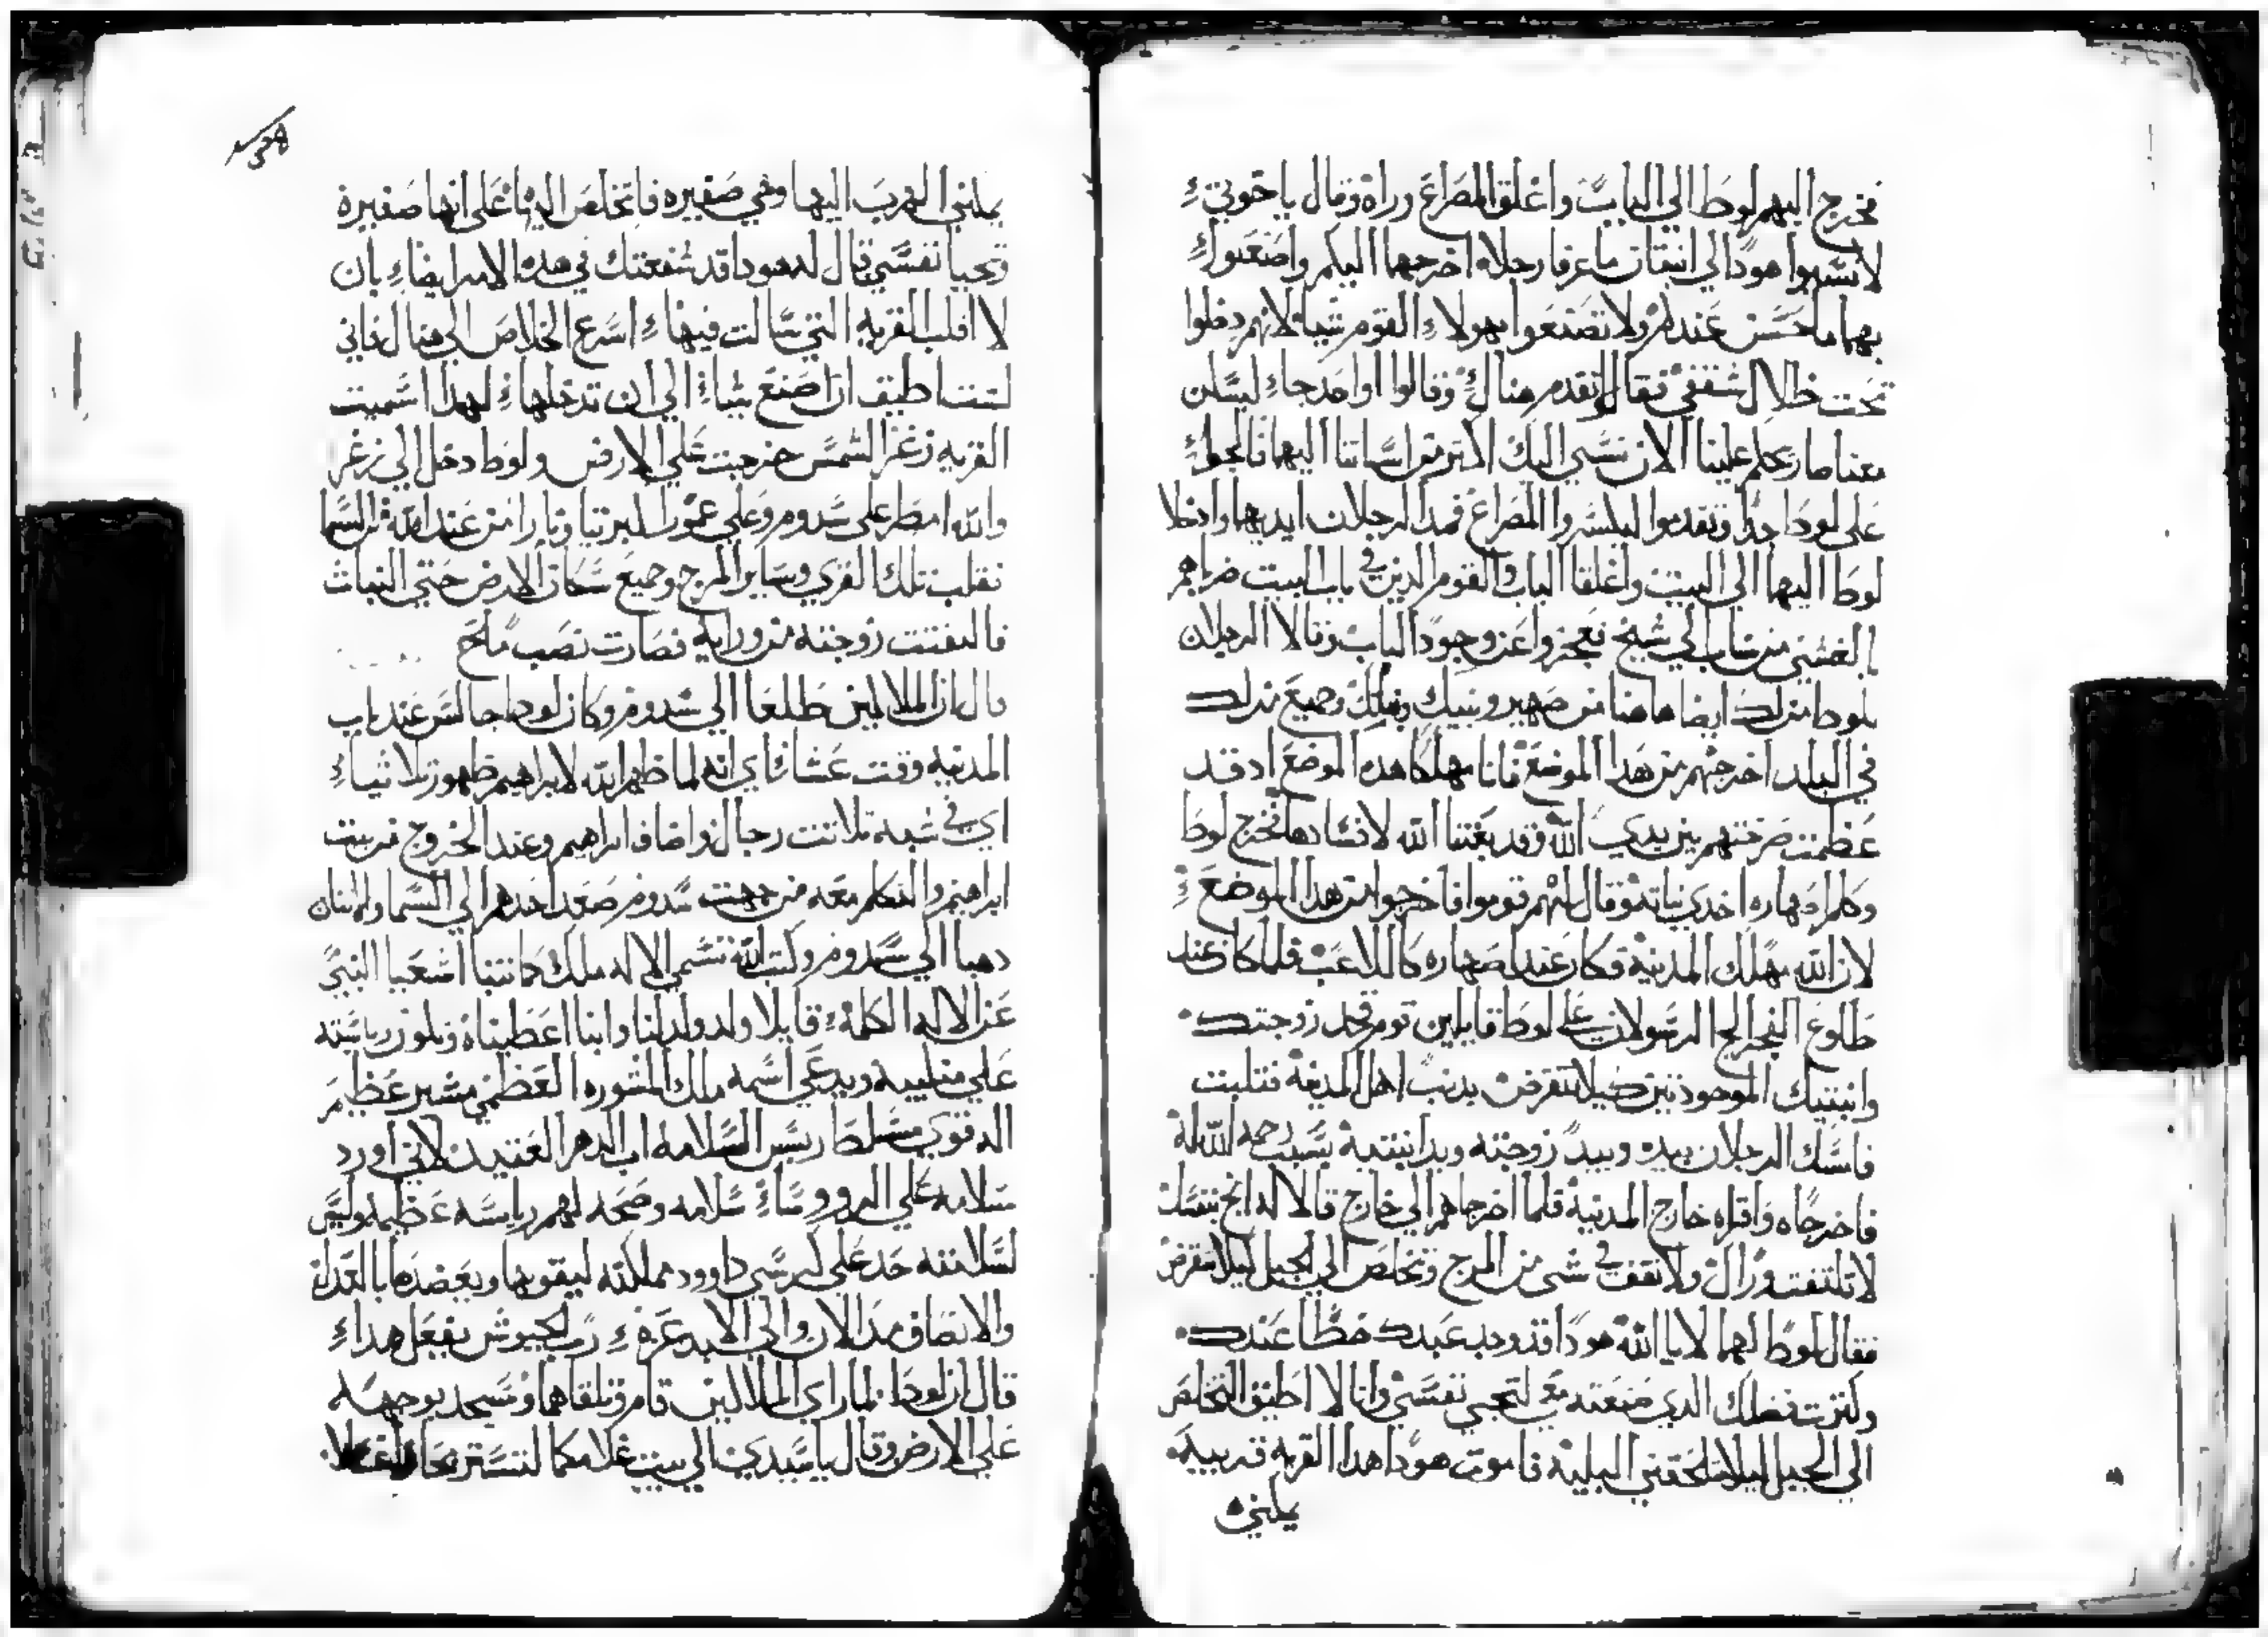 فخرج اليهم لوط الى الباب واغلق المصراع وراه وقال يا خوتي
لا تشهوا هودا لي ابنتان ما عرفا رجلا اخرجهما اليكم واصنعوا
بهما ما حسن عندكم ولا تصنعوا بهولاء القوم شيا لانهم دخلوا
تحت ظلال سقفي فقالوا تقدم هناك وقالوا اواحد جاء ليسكن
معنا صار يحكم علينا الان نسي اليك اكتر من اساتنا اليهما فالحوا
على لوط جدا وتقدموا ليكسروا المصراع فمد الرجلان ايديهما وادخلا
لوط اليهما الى البيت واغلقا الباب والقوم الدين في باب البيت ضرباهم
بالغشى من شاب الى شيخ فعجزوا عن وجود الباب وقالا الرجلان
للوط من لك ايضا هاهنا من صهير وبنيك وبناتك وجميع من لك
في البلد اخرجهم من هدا الموضع فانا مهلكا هده الموضع اد قد
عظمت صرختهم بين يدي الله وقد بعتنا الله لافسادها فخرج لوط
وكلم اصهاره اخدي بناته وقال لهم قوموا فاخرجوا من هدا الموضع
لان الله مهلك المدينة فكان عند اصهاره كاللاعب فلما كان عند
طلوع الفجر الح الرسولان على لوط قايلين قوم فخد زوجتك
وابنتيك الموجودتين كيلا تنقرض بدنب اهل المدينة فتلبت
فامسك الرجلان بيده وبيد زوجته ويد ابنتيه بسبب رحمه الله له
فاخرجاه واقراه خارج المدينة فلما اخرجاهم الى خارج قالا له انج بنفسك
لا تلتفت وراك ولا تقف في شي من المرج وتخلص الى الجبل ليلا تنقرض
فقال لوط لهما لا يا الله هودا قد وجد عبدك حظا عندك
وكترت فضلك الدي صنعته معي لتحيي نفسي وانا لا اطيق التخلص
الى الجبل ليلا تلحقني البلية فاموت هودا هدا القريه قريبيه
يمكني
يمكني الهرب اليها وهي صغيره فاتخلص اليها على انها صغيرة
وتحيا نفسي قال له هودا قد شفعتك في هده الامر ايضا بان
لا اقلب القريه التي سالت فيها اسرع الخلاص الى هناك فاني
لست اطيق ان اصنع شيا الى ان تدخلها لهدا اسميت
القريه زغر الشمس خرجت على الارض ولوط دخل الى زغر
والله امطر على سدوم وعلى عمورا كبريتا ونارا من عند الله من السما
فقلب تلك القرى وساير المرج وجميع سكان الارض حتى النبات
فالتفتت زوجته من ورايه فصارت نصب ملح
قال ان الملاكين طلعا الى سدوم وكان لوط جالس عند باب
المدينه وقت عشا اي انه لما ظهر الله لابراهيم ظهور تلاتيا
اي في شبه تلاتت رجال واضاف ابراهيم وعند الخروج من بيت
ابراهيم والتكلم معه من جهت سدوم صعد احدهم الى السما والاتنان
دهبا الى سدوم وكتب الله تسمي الاله ملك كما تنبا اشعيا النبي
عن الاله الكلمه قايلا ولد ولد لنا وابنا اعطيناه وتكون رياسته
على منكبيه ويدعى اسمه ملك المشوره العظمي مشير عظيم
اله قوي مسلط ريس السلامه اب الدهر العتيد لاني اورد
سلامه على الروسا سلامه وصحه لهم رياسته عظيمه وليس
لسلامته حد على كرسي داوود مملكته ليقويها ويعضدها بالعدل
والانصاف مد الان والى الابد غيرة رب الجيوش يفعل هدا
قال ان لوط لما راى الملاكين قام وتلقاهما وسجد بوجهه
على الارض وقال يا سيدي الى بيت غلامكما لتستريحا